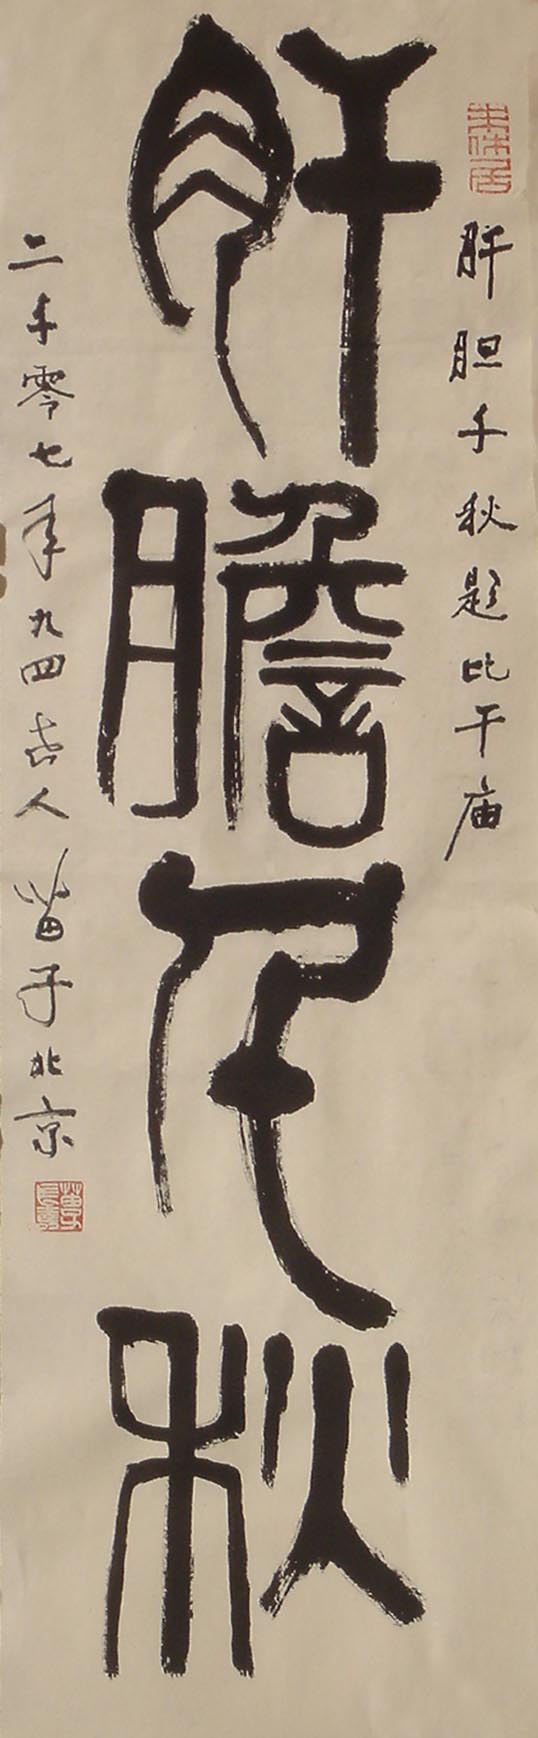 肝胆千秋题比干庙
肝膽千秋
二千零七年九四老人苗子北京